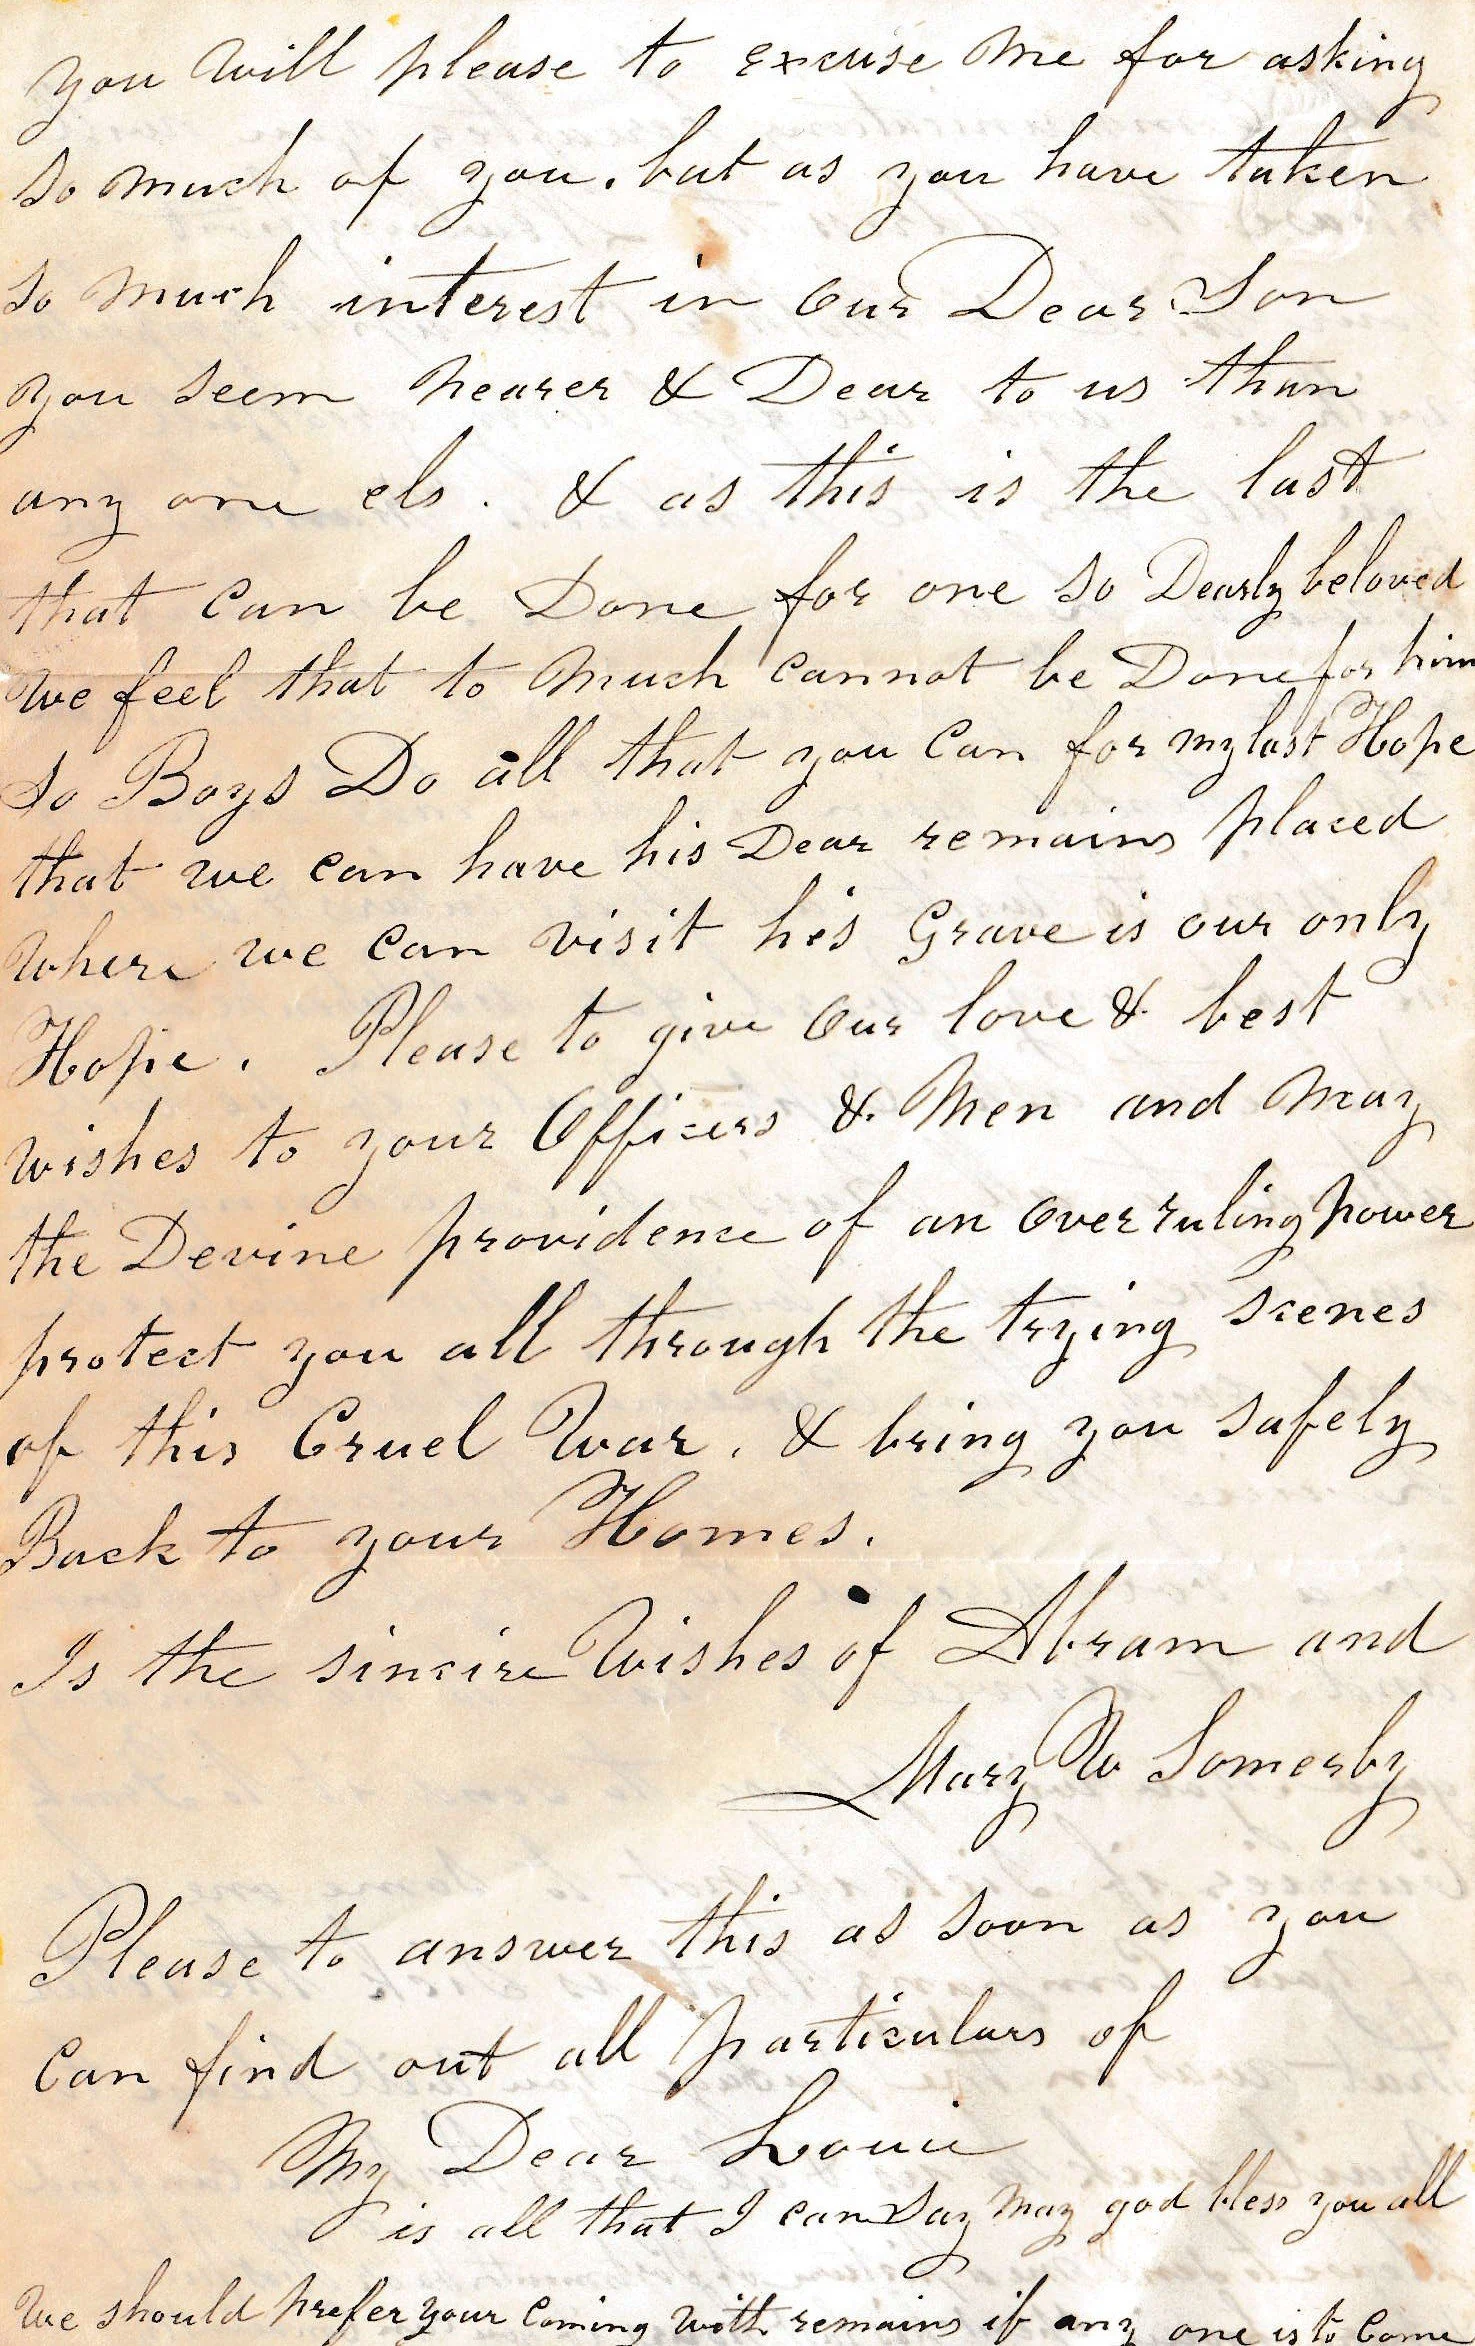 you will please to excuse me for asking
so much of you. but as you have taken
so much interest in our Dear Son
you seem nearer & Dear to us than
any one els. & as this is the last
that can be Done for one so Dearly beloved
we feel that to much cannot be Done for him
so Boys Do all that you can for my last Hope
that we can have his Dear remains placed
where we can visit his Grave is our only
Hope. Please to give our love & best
wishes to your Officers & Men and may
the Devine providence of an over ruling power
protect you all through the trying scenes
of this Cruel War. & bring you safely
Back to your Homes.
Is the sincire Wishes of Abram and
Mary W Somerby
Please to answer this as soon as you
can find out all particulars of
My Dear Louie
is all that I can Say may god bless you all
We should prefer your Coming with remains if any one is to Come